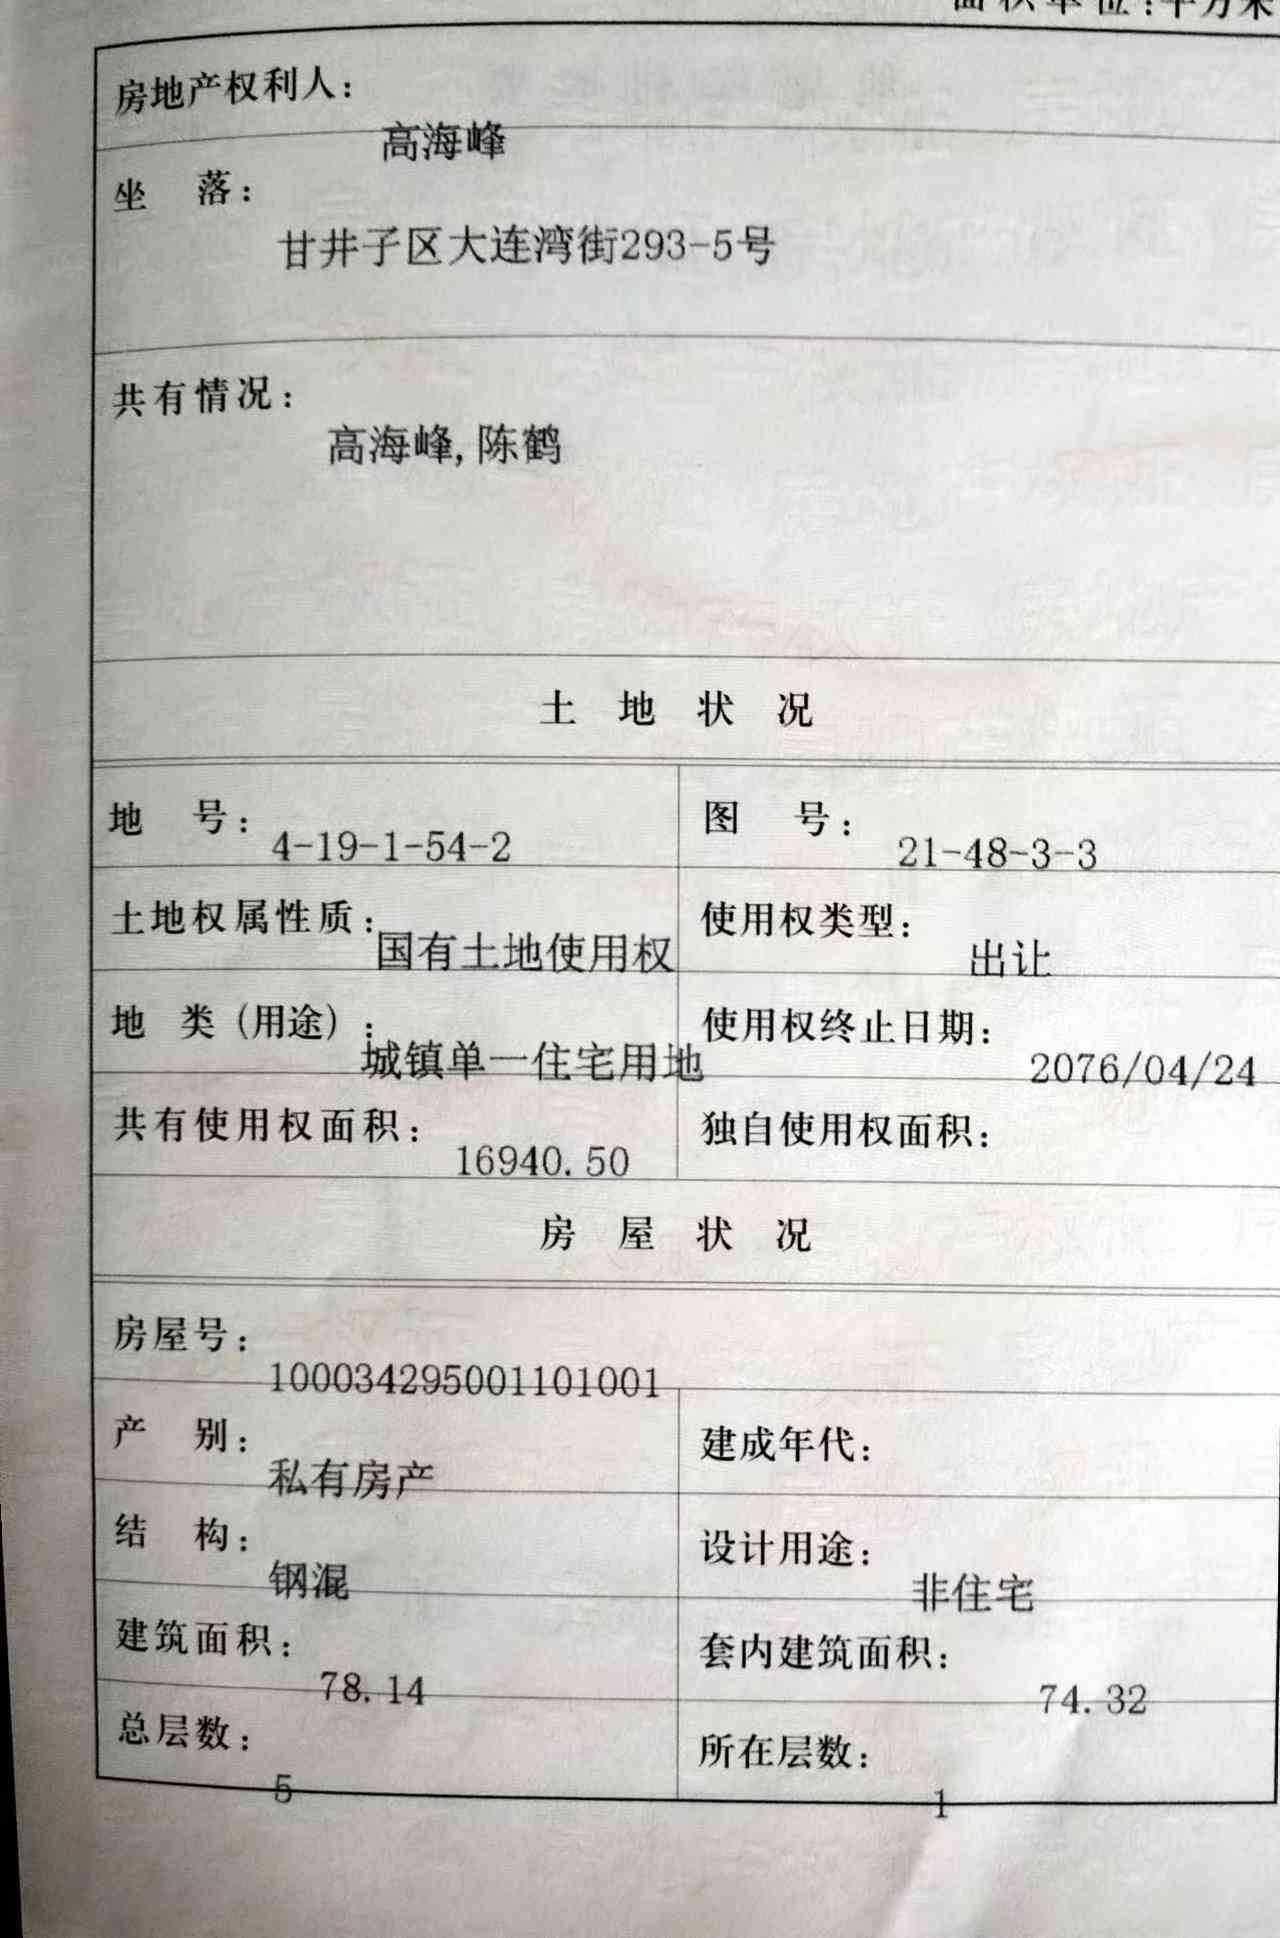 面积单位:平方米
房地产权利人:
高海峰
坐 落:
甘井子区大连湾街293-5号
共有情况:
高海峰,陈鹤
土 地 状 况
地 号: 4-19-1-54-2 图 号: 21-48-3-3
土地权属性质: 国有土地使用权 使用权类型: 出让
地 类(用途): 城镇单一住宅用地 使用权终止日期: 2076/04/24
共有使用权面积: 16940.50 独自使用权面积:
房 屋 状 况
房屋号:
100034295001101001
产 别: 私有房产 建成年代:
结 构: 钢混 设计用途: 非住宅
建筑面积: 78.14 套内建筑面积: 74.32
总层数: 5 所在层数: 1